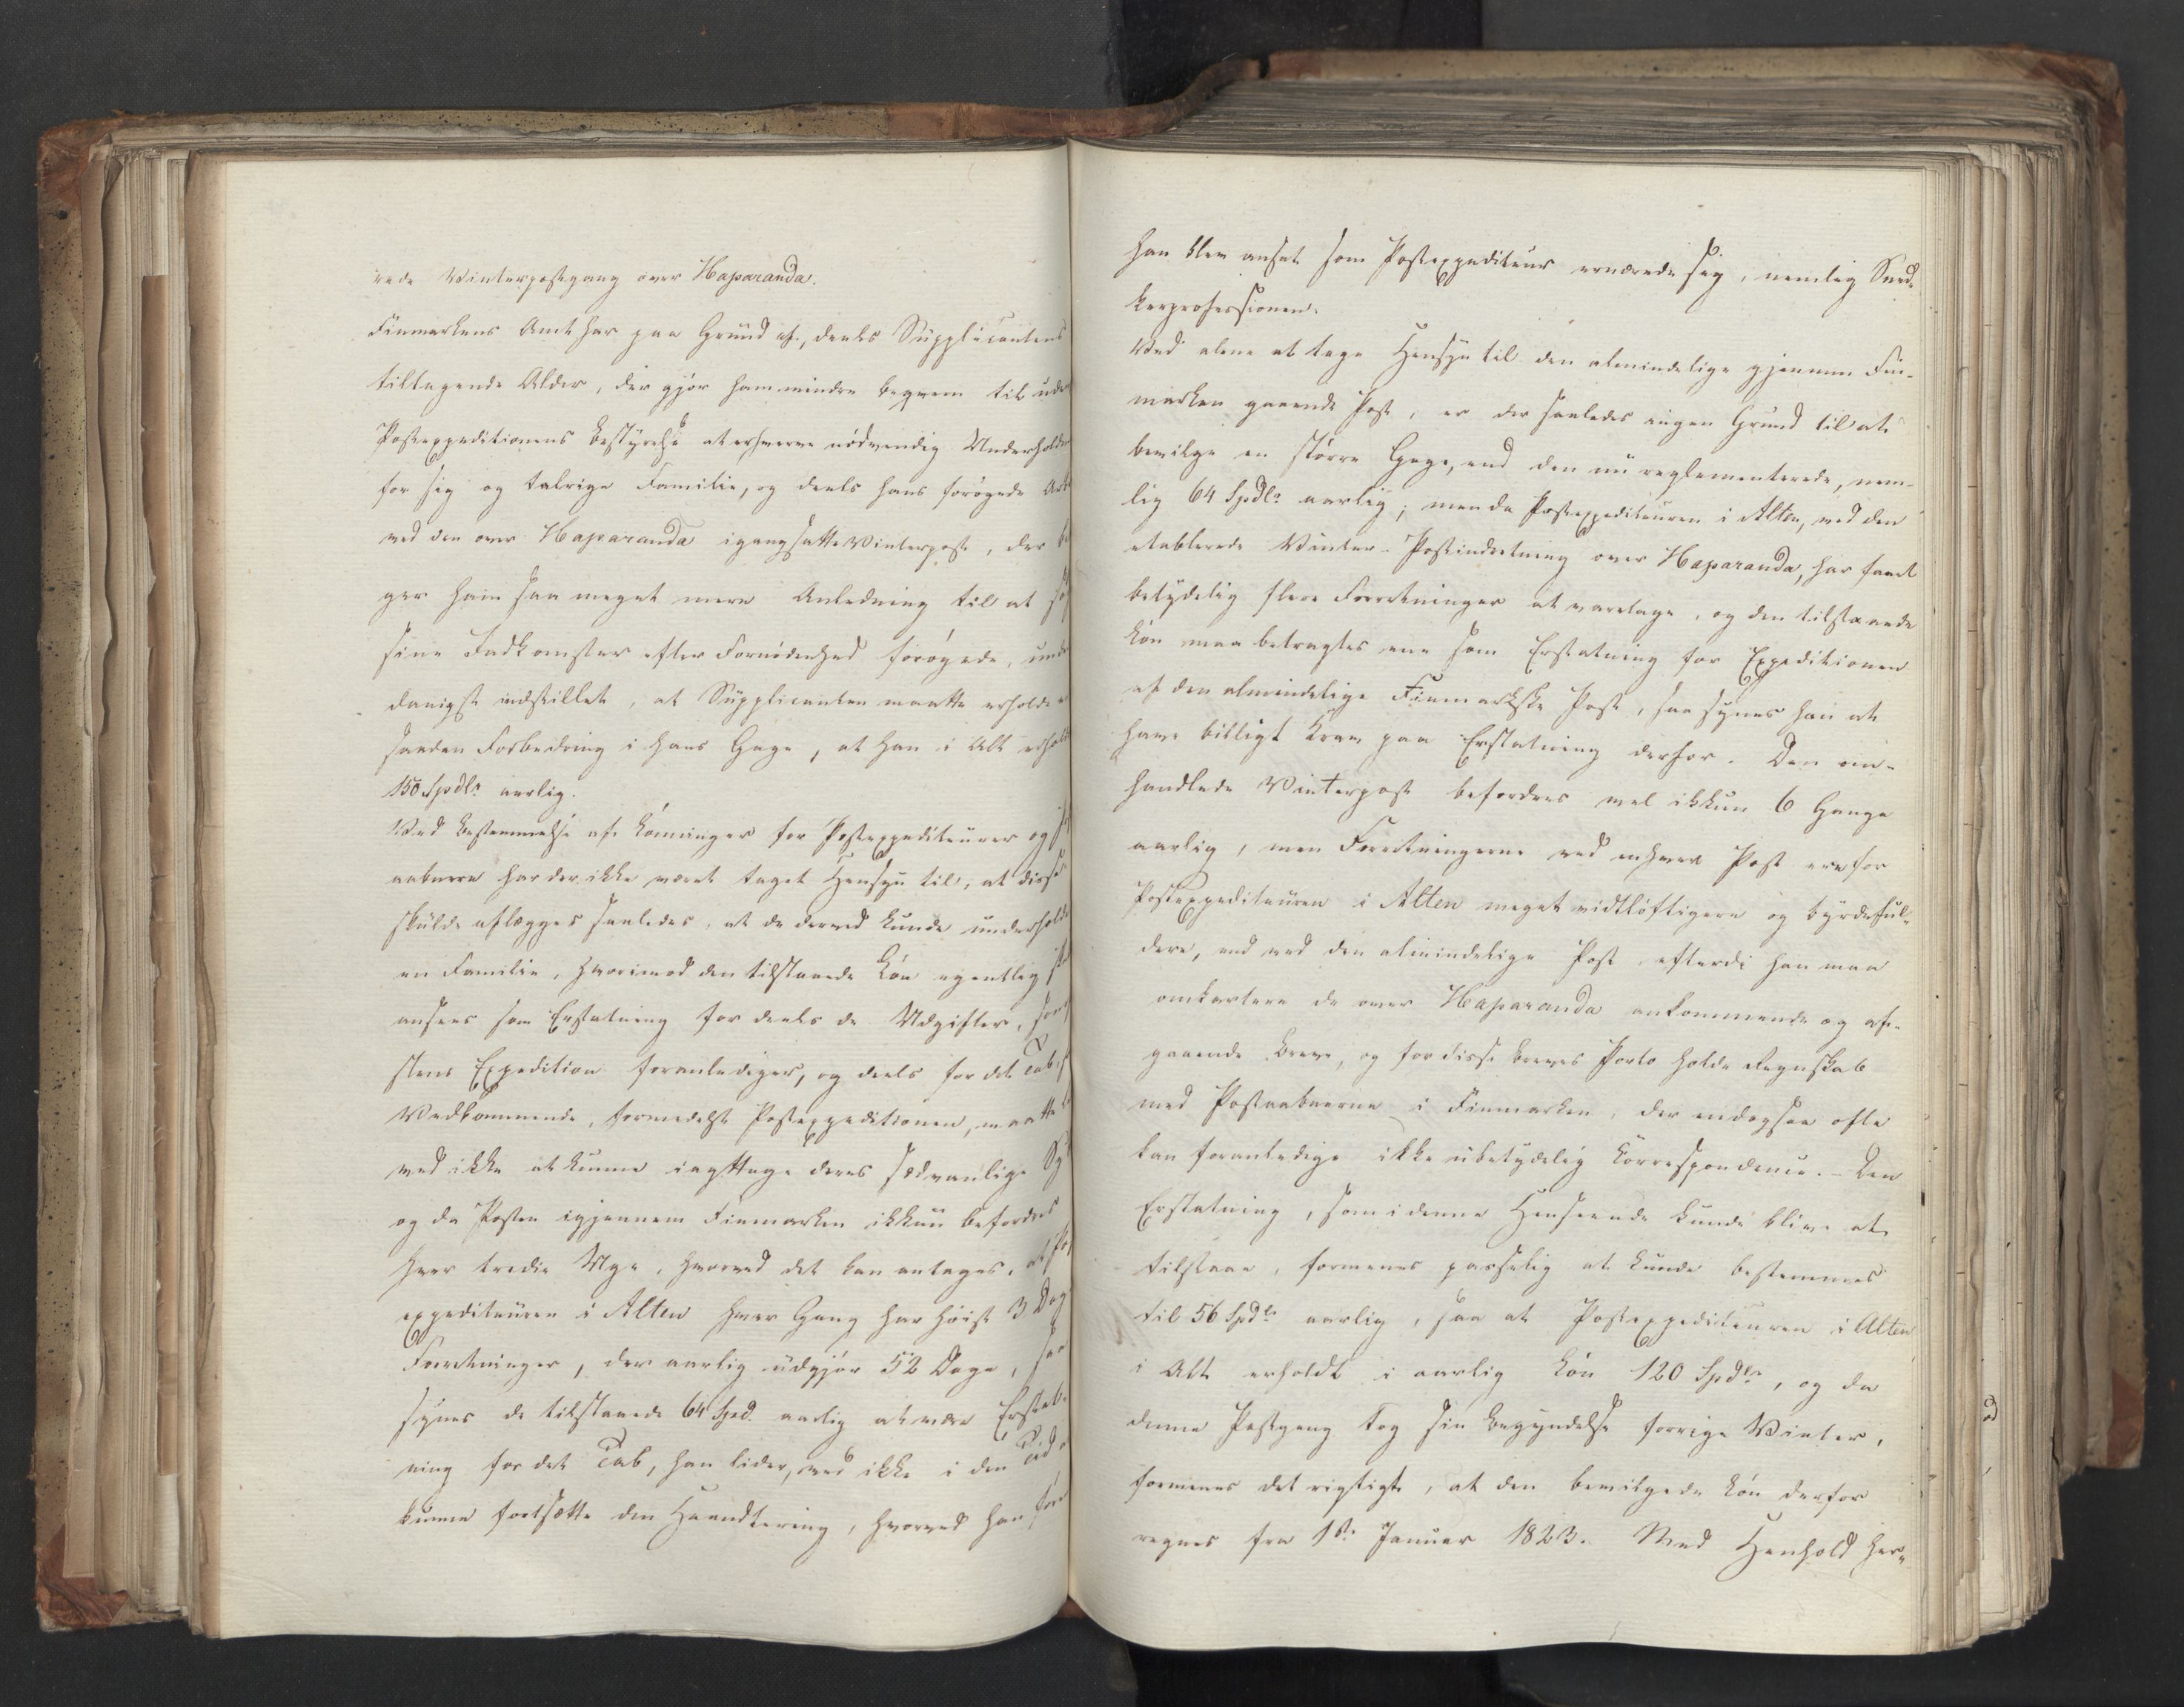 rede Vinterpostgang over Haparanda.
Finmarkens Amt har paa Grund af, deels Supplicantens
tiltagende Alder, der gjør ham mindre beqvem til uden
Postexpeditionens Bestyrelse at erhverve nødvendig Underholdn
for sig og talrige Familie, og deels hans forøgede Arb
ved den over Haparanda igangsatte Vinterpost, der
ger ham saa meget mere Anledning til at
sine Indkomster efter Fornødenhed forøgede, unde
danigst indstillet, at Supplicanten maatte erholde
saadan Forbedring i hans Gage, at han i Alt erhold
150 Spdlr aarlig.
Ved Bestemmelse af Lønninger for Postexpediteurer og
aabnere har der ikke været taget Hensyn til, at disse
skulde aflægges saaledes, at de derved kunde underholde
en Familie, hvorimod den tilstaaede Løn egentlig
ansees som Erstatning for deels de Udgifter,
stens Expedition foranlediger, og deels for det Tab,
Vedkommende, formedelst Postexpeditionen, maatte
ved ikke at kunne iagttage deres sædvanlige
og da Posten igjennem Finmarken ikkun befordres
hver tredie Uge, hvorved det kan antages, at Po
expediteuren i Alten hver Gang har høist 3 Dag
Forretninger, der aarlig udgjør 52 Dage, saa
synes de tilstaaede 64 Spd. aarlig at være Erstat-
ning for det Tab, han lider, ved ikke i den Tid
kunne fortsætte den Haandtering, hvorved han før
han blev ansat som Postexpediteur ernærede sig, nemlig Sned-
kerprofessionen.
Ved alene at tage Hensyn til den almindelige gjennem Fin-
marken gaaende Post, er der saaledes ingen Grund til at
bevilge en større Gage, end den nu reglementerede, nem-
lig 64 Spdlr aarlig; men da Postexpediteuren i Alten, ved den
etablerede Vinter-Postindretning over Haparanda, har faaet
betydelig flere Forretninger at varetage, og den tilstaaede
Løn maa betragtes ene som Erstatning for Expeditionen
af den almindelige Finmarkske Post, saa synes han at
have billigt Krav paa Erstatning derfor. Den om-
handlede Vinterpost befordres vel ikkun 6 Gange
aarlig, men Forretningerne ved enhver Post ere for
Postexpediteuren i Alten meget vidtløftigere og byrdeful-
dere, end ved den almindelige Post, efterdi han maa
omkartere de over Haparanda ankommende og af-
gaaende Breve, og for disse Breves Porto holde Regnskab
med Postaabnerne i Finmarken, der endogsaa ofte
kan foranledige ikke ubetydelig Correspondence. - Den
Erstatning, som i denne Henseende kunde blive at
tilstaae, formenes passelig at kunde bestemmes
til 56 Spdlr aarlig, saa at Postexpediteuren i Alten
i Alt erholdt i aarlig Løn 120 Spdlr, og da
denne Postgang tog sin Begyndelse forrige Vinter,
formenes det rigtigt, at den bevilgede Løn derfor
regnes fra 1ste Januar 1823. Med Henhold her-